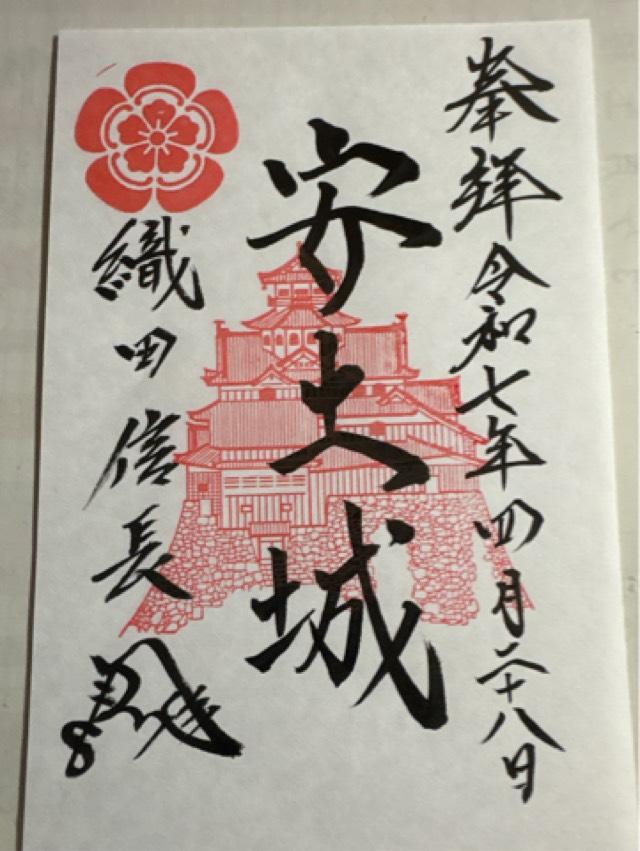 奉拝令和七年四月二十八日
安土城
織田信長